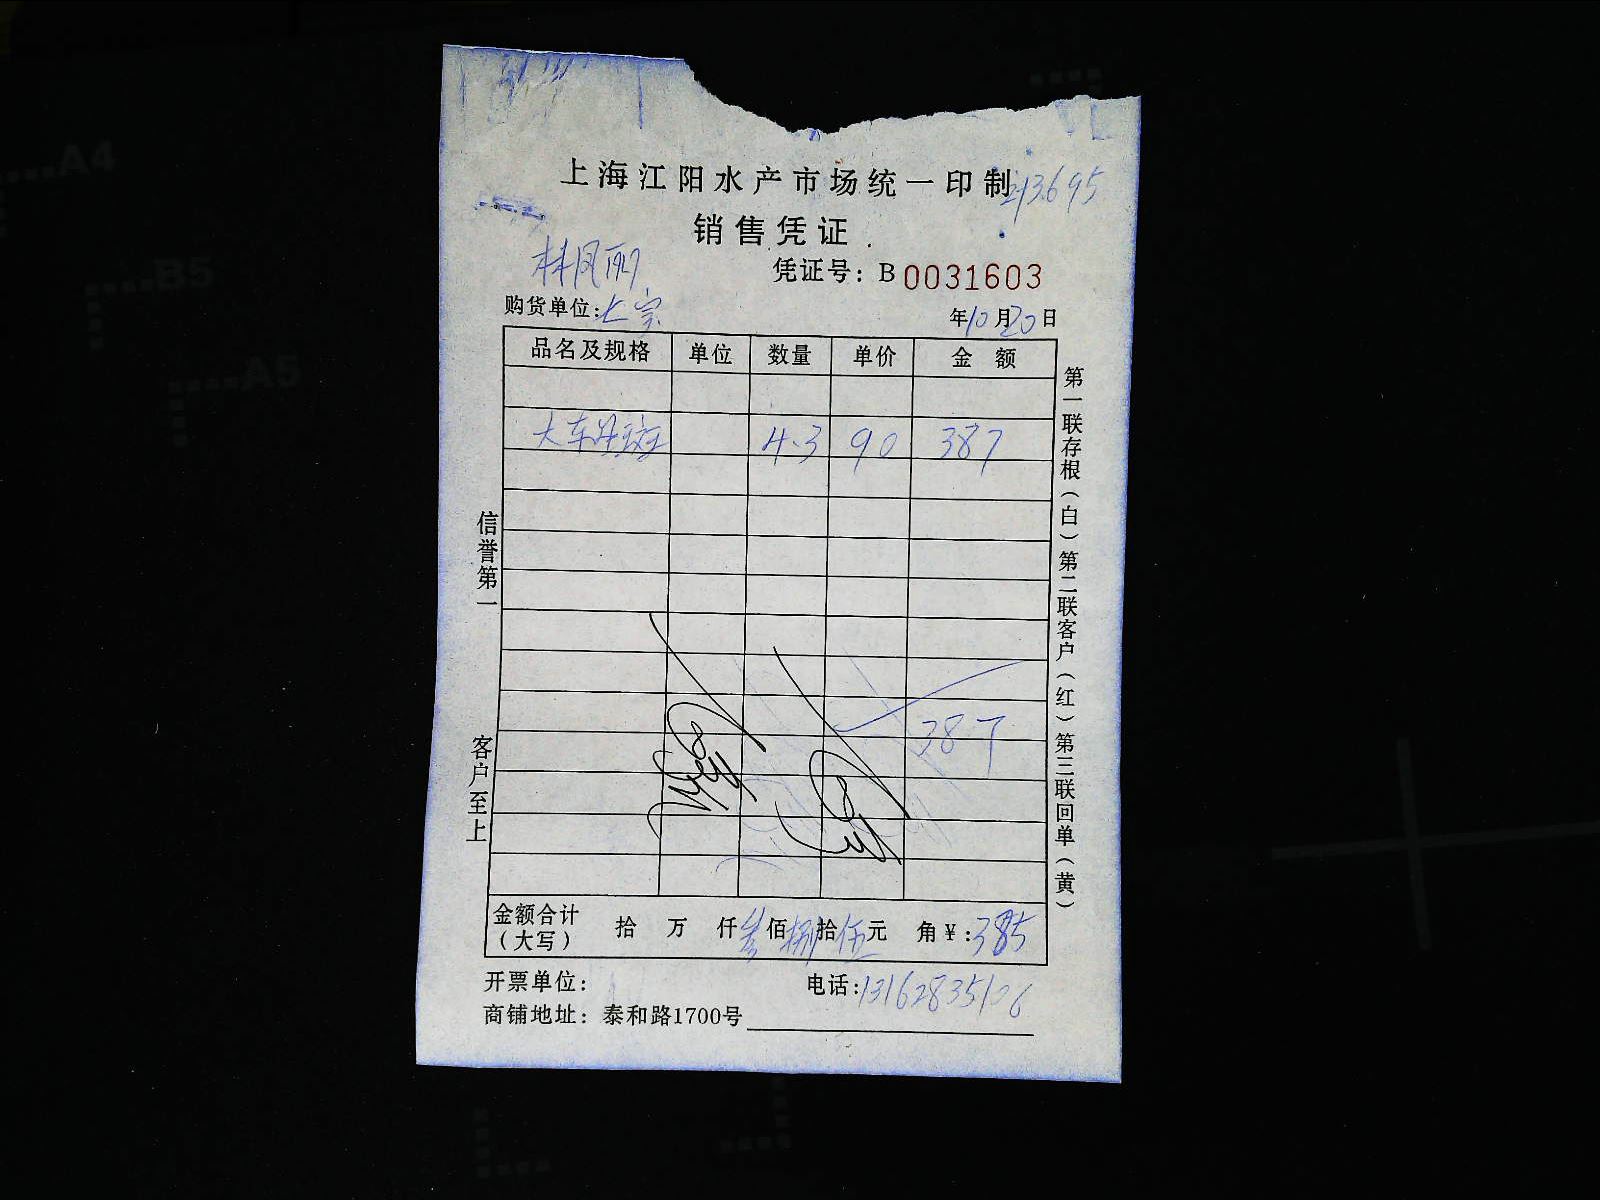 上海江阳水产市场统一印制
213695
销售凭证
林凤丽
凭证号：B 0031603
购货单位：大宗
年10月20日
品名及规格 单位 数量 单价 金 额
大东星斑 4.3 90 387
387
信誉第一
客户至上
第一联存根（白）第二联客户（红）第三联回单（黄）
金额合计（大写） 拾 万 仟叁佰捌拾伍元 角￥：385
开票单位：
电话：13162835106
商铺地址：泰和路1700号
A4
B5
A5